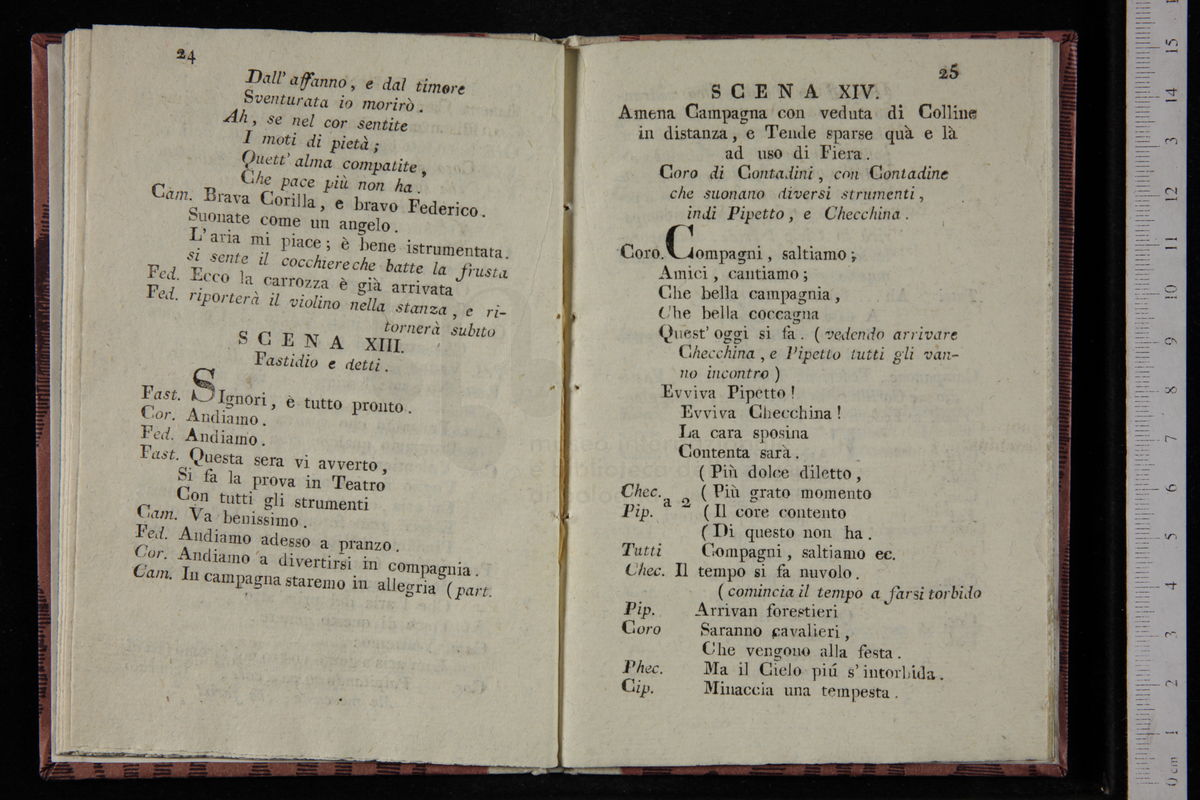 24
Dall' affanno, e dal timore
Sventurata io morirò.
Ah, se nel cor sentite
I moti di pietà;
Quett' alma compatite,
Che pace più non ha.
Cam. Brava Corilla, e bravo Federico.
Suonate come un angelo.
L'aria mi piace; è bene istrumentata.
si sente il cocchiere che batte la frusta
Fed. Ecco la carrozza è già arrivata
Fed. riporterà il violino nella stanza, e ri-
tornerà subito
SCENA XIII.
Fastidio e detti.
Fast. SIgnori, è tutto pronto.
Cor. Andiamo.
Fed. Andiamo.
Fast. Questa sera vi avverto,
Si fa la prova in Teatro
Con tutti gli strumenti
Cam. Va benissimo.
Fed. Andiamo adesso a pranzo.
Cor. Andiamo a divertirsi in compagnia.
Cam. In campagna staremo in allegria (part.
25
SCENA XIV.
Amena Campagna con veduta di Colline
in distanza, e Tende sparse quà e là
ad uso di Fiera.
Coro di Contadini, con Contadine
che suonano diversi strumenti,
indi Pipetto, e Checchina.
Coro. Compagni, saltiamo;
Amici, cantiamo;
Che bella campagnia,
Che bella coccagna
Quest' oggi si fà. (vedendo arrivare
Checchina, e Pipetto tutti gli van-
no incontro)
Evviva Pipetto!
Evviva Checchina!
La cara sposina
Contenta sarà.
(Più dolce diletto,
Chec. (Più grato momento
Pip. a 2 (Il core contento
(Di questo non ha.
Tutti Compagni, saltiamo ec.
Chec. Il tempo si fà nuvolo.
(comincia il tempo a farsi torbido
Pip. Arrivan forestieri
Coro Saranno cavalieri,
Che vengono alla festa.
Phec. Ma il Cielo piú s'intorbida.
Cip. Minaccia una tempesta.
0 cm 1 2 3 4 5 6 7 8 9 10 11 12 13 14 15